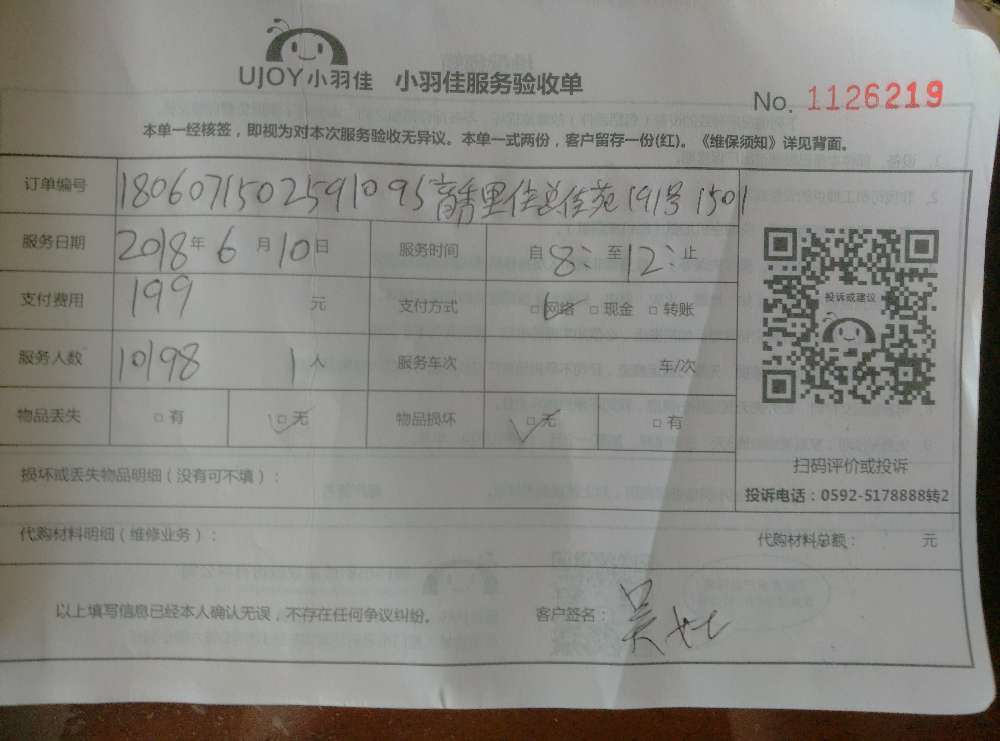 UJOY小羽佳 小羽佳服务验收单
No. 1126219
本单一经核签，即视为对本次服务验收无异议。本单一式两份，客户留存一份(红)。《维保须知》详见背面。
订单编号 180607150259109 里佳 佳苑191号1501
服务日期 2018年6月10日 服务时间 自8:至12:止
支付费用 199 元 支付方式 □网络 □现金 □转账
投诉或建议
服务人数 10198 1人 服务车次 车/次
物品丢失 □有 □无 物品损坏 □无 □有
扫码评价或投诉
损坏或丢失物品明细（没有可不填）：
投诉电话：0592-5178888转2
代购材料明细（维修业务）： 代购材料总额： 元
以上填写信息已经本人确认无误，不存在任何争议纠纷。 客户签名：吴